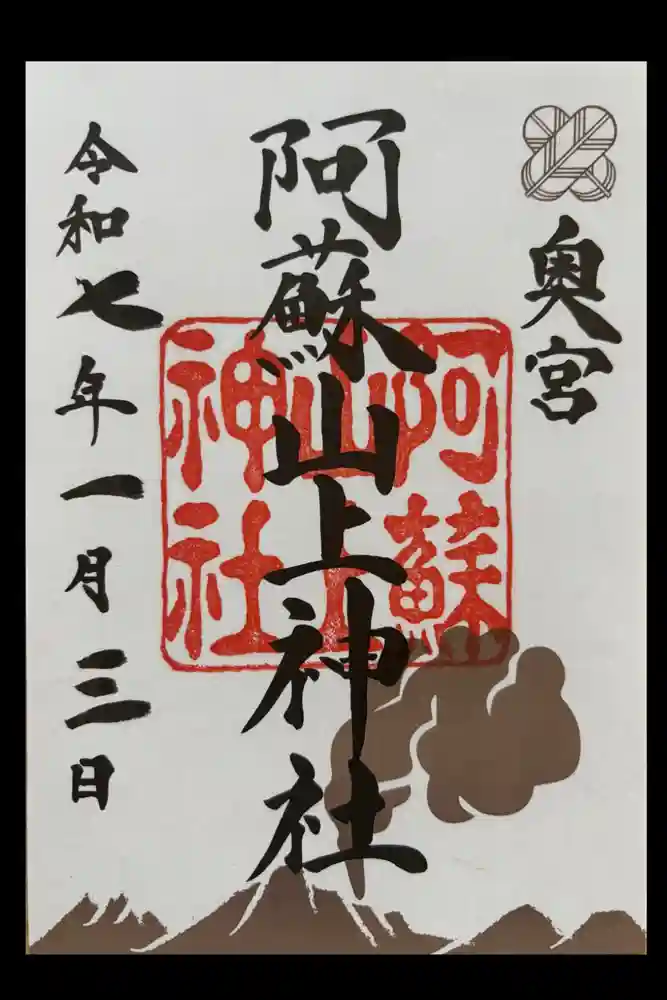 奥宮
阿蘇山上神社
阿蘇
山上
神社
令和七年一月三日